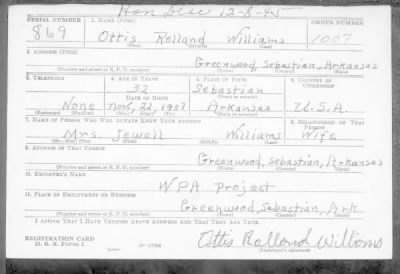 Hon Disc 12-8-45
SERIAL NUMBER 1. NAME (Print) ORDER NUMBER
869 Ottis Rolland Williams 1007
(First) (Middle) (Last)
2. ADDRESS (Print)
Greenwood, Sebastian, Arkansas
(Number and street or R. F. D. number) (Town) (County) (State)
3. TELEPHONE 4. AGE IN YEARS 5. PLACE OF BIRTH 6. COUNTRY OF CITIZENSHIP
32 Sebastian
DATE OF BIRTH (Town or county)
None Nov, 22, 1907 Arkansas U.S.A.
(Exchange) (Number) (Mo.) (Day) (Yr.) (State or country)
7. NAME OF PERSON WHO WILL ALWAYS KNOW YOUR ADDRESS 8. RELATIONSHIP OF THAT PERSON
Mrs. Jewell Williams Wife
(Mr., Mrs., Miss) (First) (Middle) (Last)
9. ADDRESS OF THAT PERSON
Greenwood, Sebastian, Arkansas
(Number and street or R. F. D. number) (Town) (County) (State)
10. EMPLOYER'S NAME
WPA Project
11. PLACE OF EMPLOYMENT OR BUSINESS
Greenwood, Sebastian, Ark.
(Number and street or R. F. D. number) (Town) (County) (State)
I AFFIRM THAT I HAVE VERIFIED ABOVE ANSWERS AND THAT THEY ARE TRUE.
REGISTRATION CARD
D. S. S. FORM 1
Ottis Rolland Williams
(Registrant's signature)